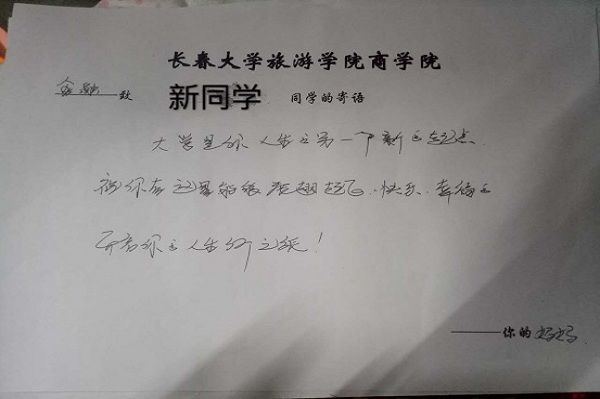 长春大学旅游学院商学院
致 新同学 同学的寄语
大学是你人生之另一个新的起点
祝你在这里能够展翅起飞、快乐、幸福的
开启你的人生新之旅！
——你的妈妈